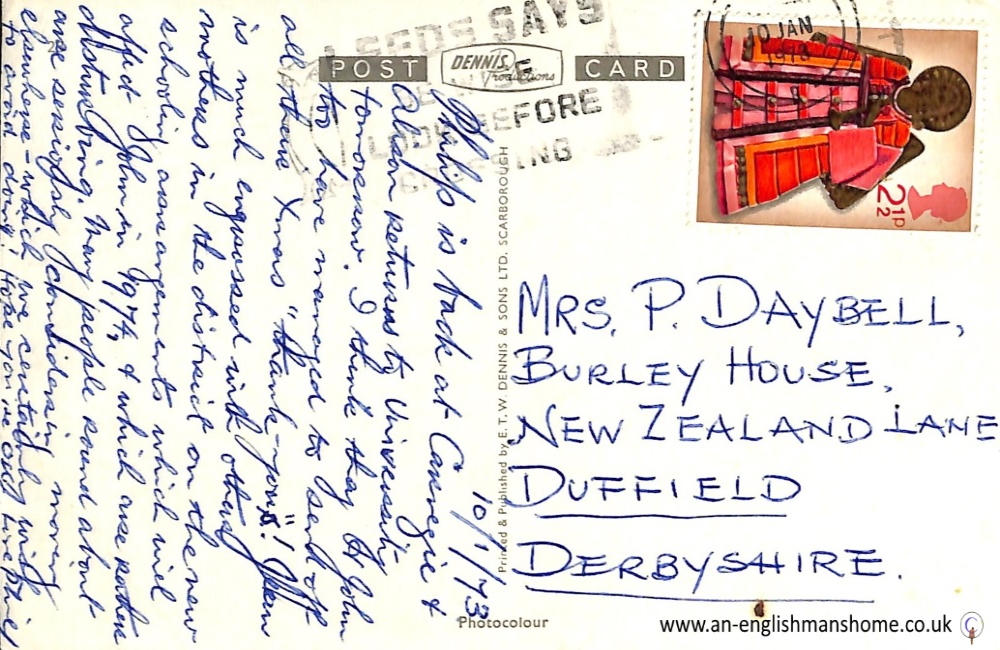 LEEDS SAYS
LOOK BEFORE
CROSSING
POST CARD
DENNIS
Productions
10 JAN
1973
2½p
10/1/73
Philip is back at Carnegie &
Alison returns to University
tomorrow. I think they & John
too have managed to send off
all their Xmas "thank-yous"! Jean
is much engrossed with other
mothers in the district on the new
schooling arrangements which will
affect John in 1974, & which are rather
disturbing. Many people round about
are seriously considering moving
elsewhere - which we certainly wish
to avoid doing! Hope you're all
Printed & Published by E. T. W. DENNIS & SONS LTD. SCARBOROUGH
Photocolour
MRS. P. DAYBELL,
BURLEY HOUSE,
NEW ZEALAND LANE
DUFFIELD
DERBYSHIRE.
www.an-englishmanshome.co.uk